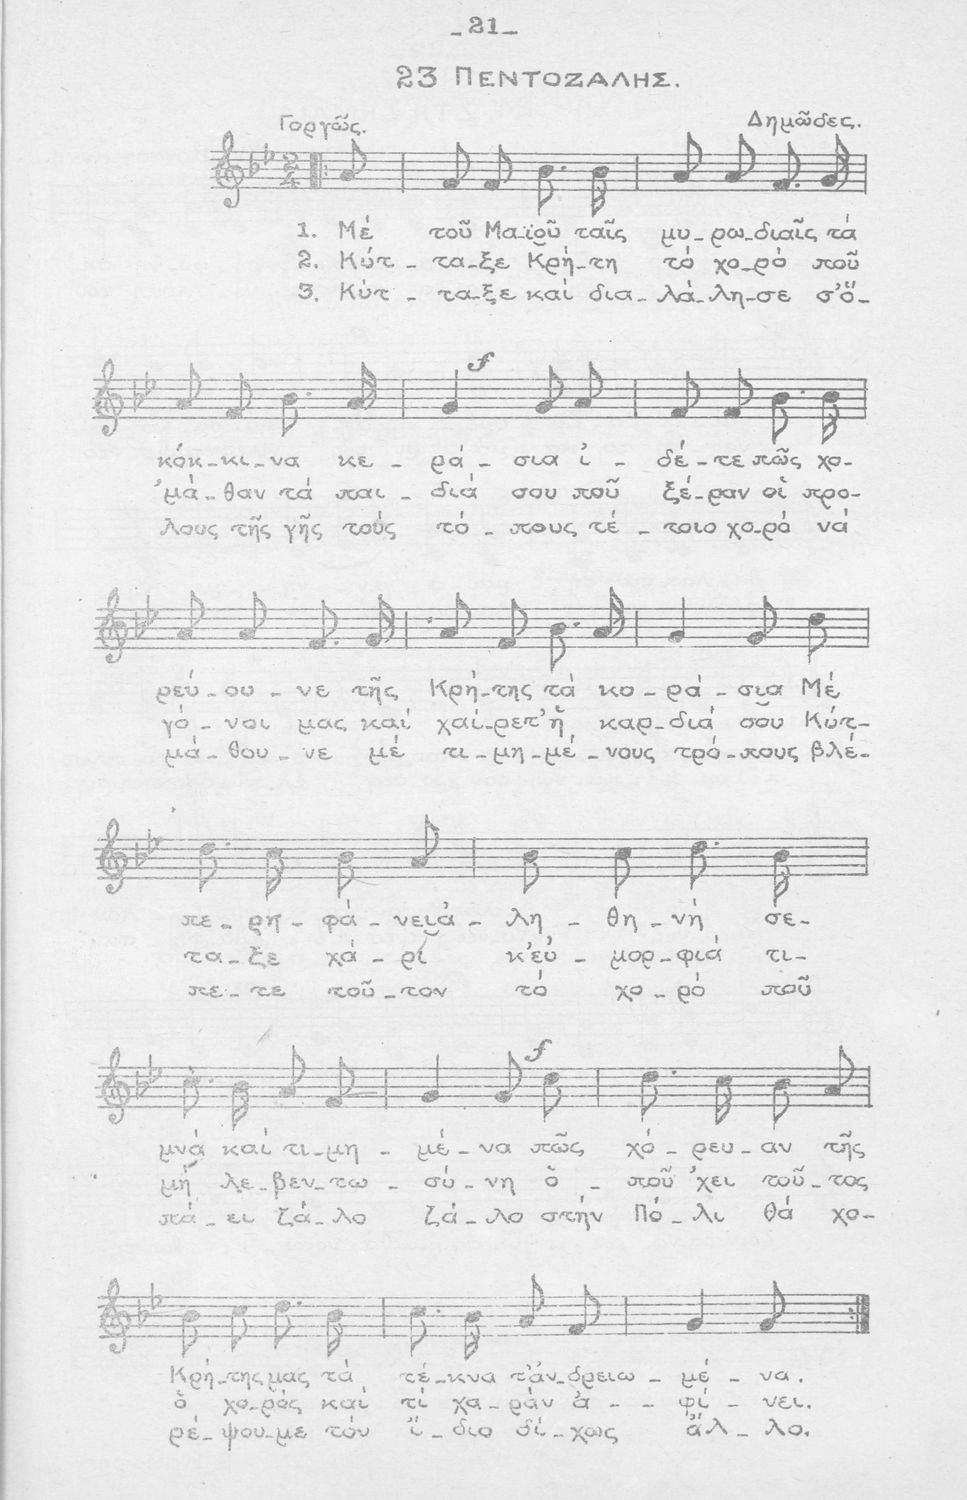 _21_
23 ΠΕΝΤΟΖΑΛΗΣ.
Γοργῶς. Δημῶδες.
1. Μέ τοῦ Μα-ϊοῦ ταῖς μυ_ρω_διαῖς τά
2. Κύτ_τα_ξε Κρή_τη τό χο_ρό ποῦ
3. Κύτ_τα_ξε καί δια_λά_λη_σε σ'ὅ_
f
κόκ_κι_να κε_ρά_σια ἰ_δέ_τε πῶς χο_
'μά_θαν τά παι_διά σου ποῦ ξέ_ραν οἱ προ_
λους τῆς γῆς τούς τό_πους τέ_τοιο χο_ρό νά
ρεύ_ου_νε τῆς Κρή_της τά κο_ρά_σια Μέ
γό_νοι μας καί χαί_ρετ'ἡ καρ_διά σου Κύτ_
μά_θου_νε μέ τι_μη_μέ_νους τρό_πους βλέ_
πε_ρη_φά_νειἀ_λη_θη_νή σε_
τα_ξε χά_ρί κ'εὐ_μορ_φιά τι_
πε_τε τοῦ_τον τό χο_ρό ποῦ
f
μνά καί τι_μη_μέ_να πῶς χό_ρευ_αν τῆς
μή λε_βεν_τω_σύ_νη ὁ_ποῦ 'χει τοῦ_τος
πά_ει ζά_λο ζά_λο στήν Πό_λι θά χο_
Κρή_της μας τά τέ_κνα τ'ἀν_δρειω_μέ_να.
ὁ χο_ρός καί τί χα_ράν ἀ__φί_νει.
ρέ_ψου_με τόν ἴ_διο δί_χως ἄλ_λο.